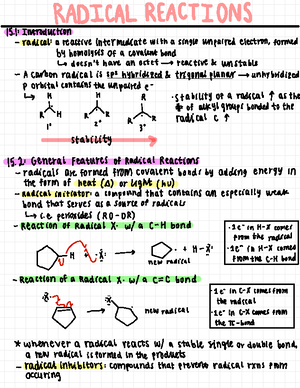 RADICAL REACTIONS
15.1: Introduction
- radical: a reactive intermediate with a single unpaired electron, formed
by homolysis of a covalent bond
↳ doesn't have an octet → reactive & unstable
- A carbon radical is sp² hybridized & trigonal planar → unhybridized
p orbital contains the unpaired e⁻
H H R
R H R R R R
1° 2° 3°
· stability of a radical ↑ as the
# of alkyl groups bonded to the
radical C ↑
stability
15.2: General Features of Radical Reactions
- radicals are formed from covalent bonds by adding energy in
the form of heat (Δ) or light (hν)
- radical initiator: a compound that contains an especially weak
bond that serves as a source of radicals
↳ i.e. peroxides (RO-OR)
- Reaction of a Radical X· w/ a C-H Bond
H + ·X: → · + H-X:
new radical
· 1e⁻ in H-X comes
from the radical
· 1e⁻ in H-X comes
from the C-H bond
- Reaction of a Radical X· w/ a C=C Bond
·X: → :X:
new radical
· 1e⁻ in C-X comes from
the radical
· 1e⁻ in C-X comes from
the π-bond
* whenever a radical reacts w/ a stable single or double bond,
a new radical is formed in the products
- radical inhibitors: compounds that prevent radical rxns from
occuring